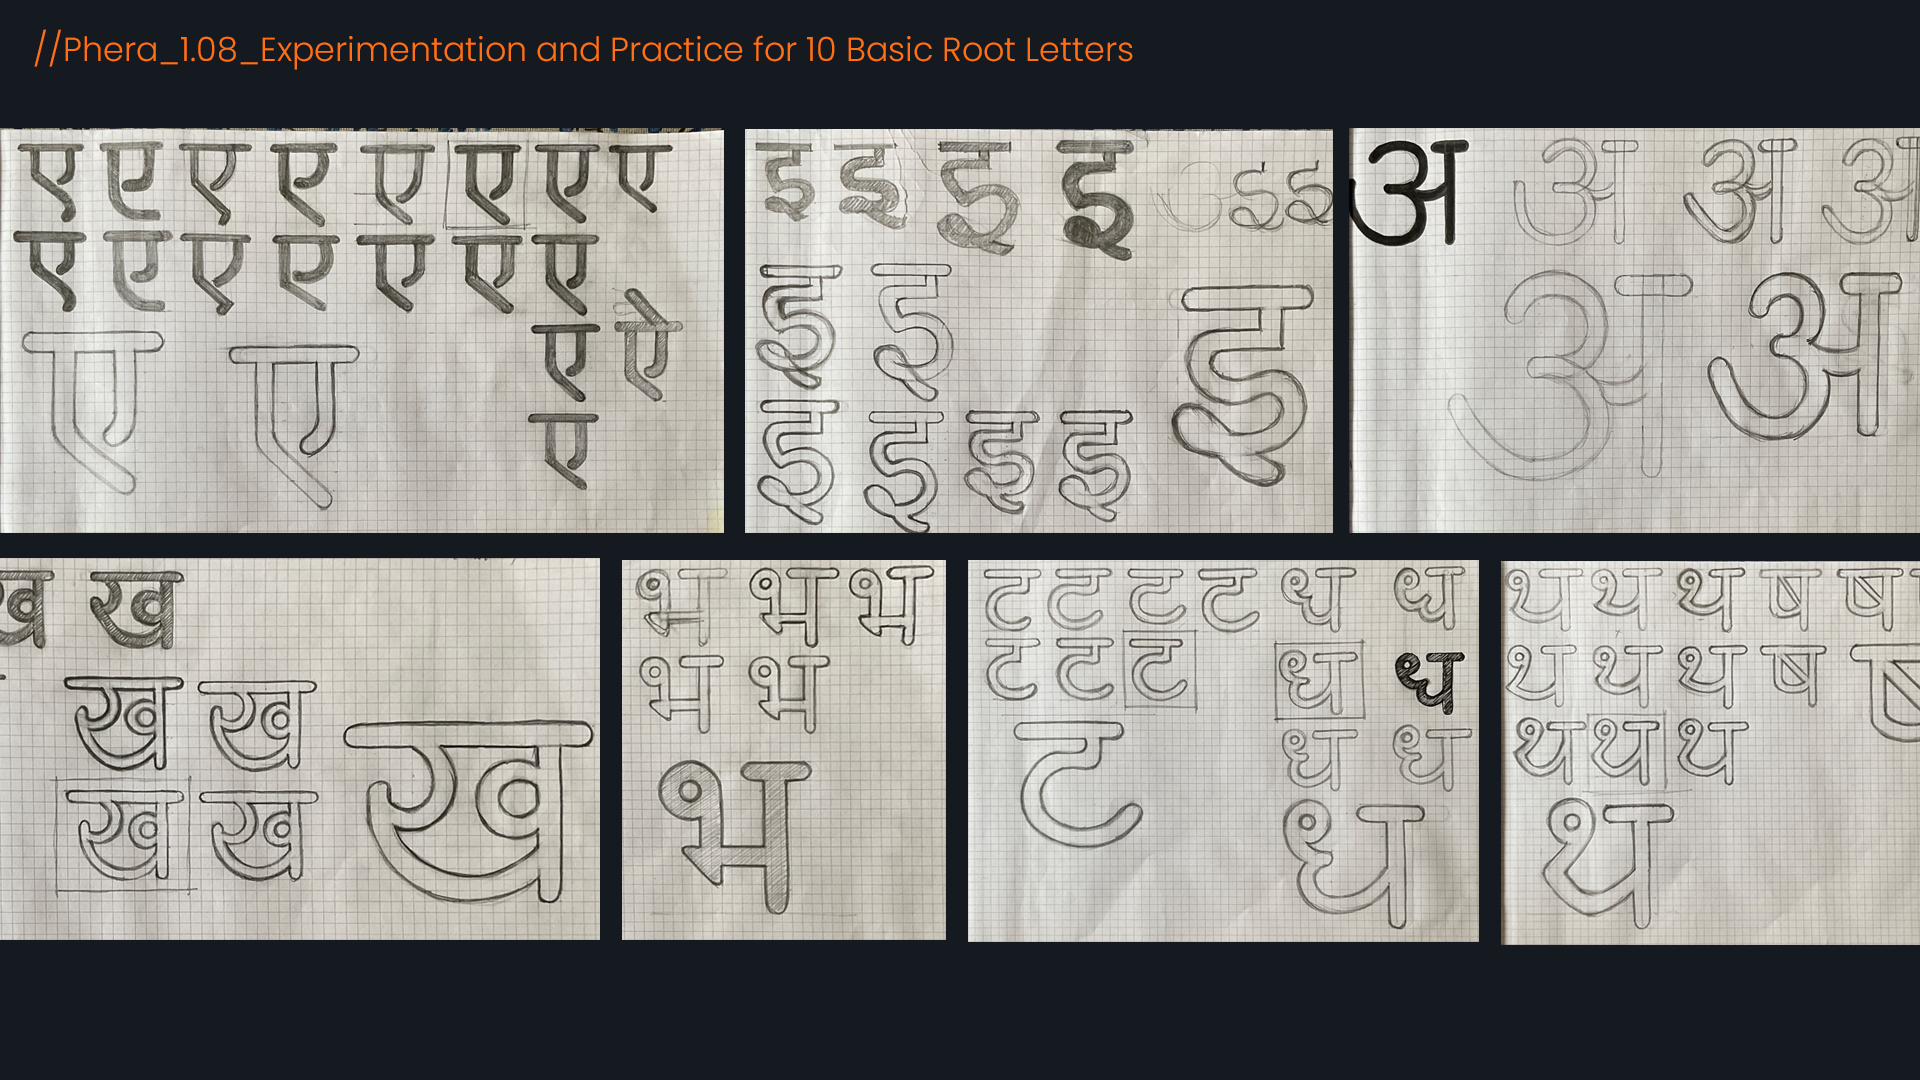 //Phera_1.08_Experimentation and Practice for 10 Basic Root Letters
ए ए ए ए ए ए ए ए
ए ए ए ए ए ए ए
ए ऐ
ए ए ए
इ इ इ इ इ इ
इ इ
इ
इ इ इ इ
अ अ अ अ
अ अ
ख ख
ख ख
ख
ख ख
भ भ भ
भ भ
भ
ट ट ट ट ध ध
ट ट ट ध ध
ट ध ध
ध
थ थ थ ष ष
थ थ थ ष
थ थ थ
थ